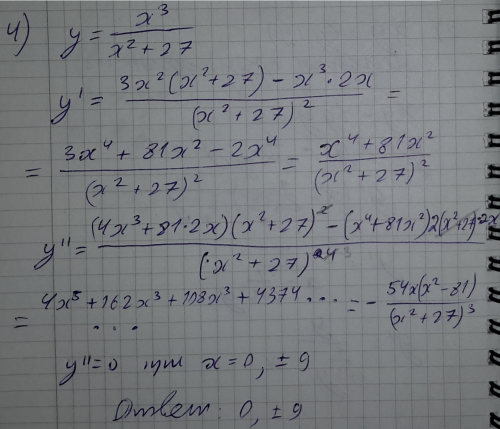 4) y = x³/(x² + 27)
y' = (3x²(x²+27) − x³·2x)/(x² + 27)² =
= (3x⁴ + 81x² − 2x⁴)/(x² + 27)² = (x⁴ + 81x²)/(x² + 27)²
y'' = ((4x³+81·2x)(x²+27)² − (x⁴+81x²)2(x²+27)·2x)/(x² + 27)⁴ ³
= (4x⁵ + 162x³ + 108x³ + 4374 ...)/... = − 54x(x²−81)/(x² + 27)³
y''=0 при x=0, ±9
Ответ: 0, ±9